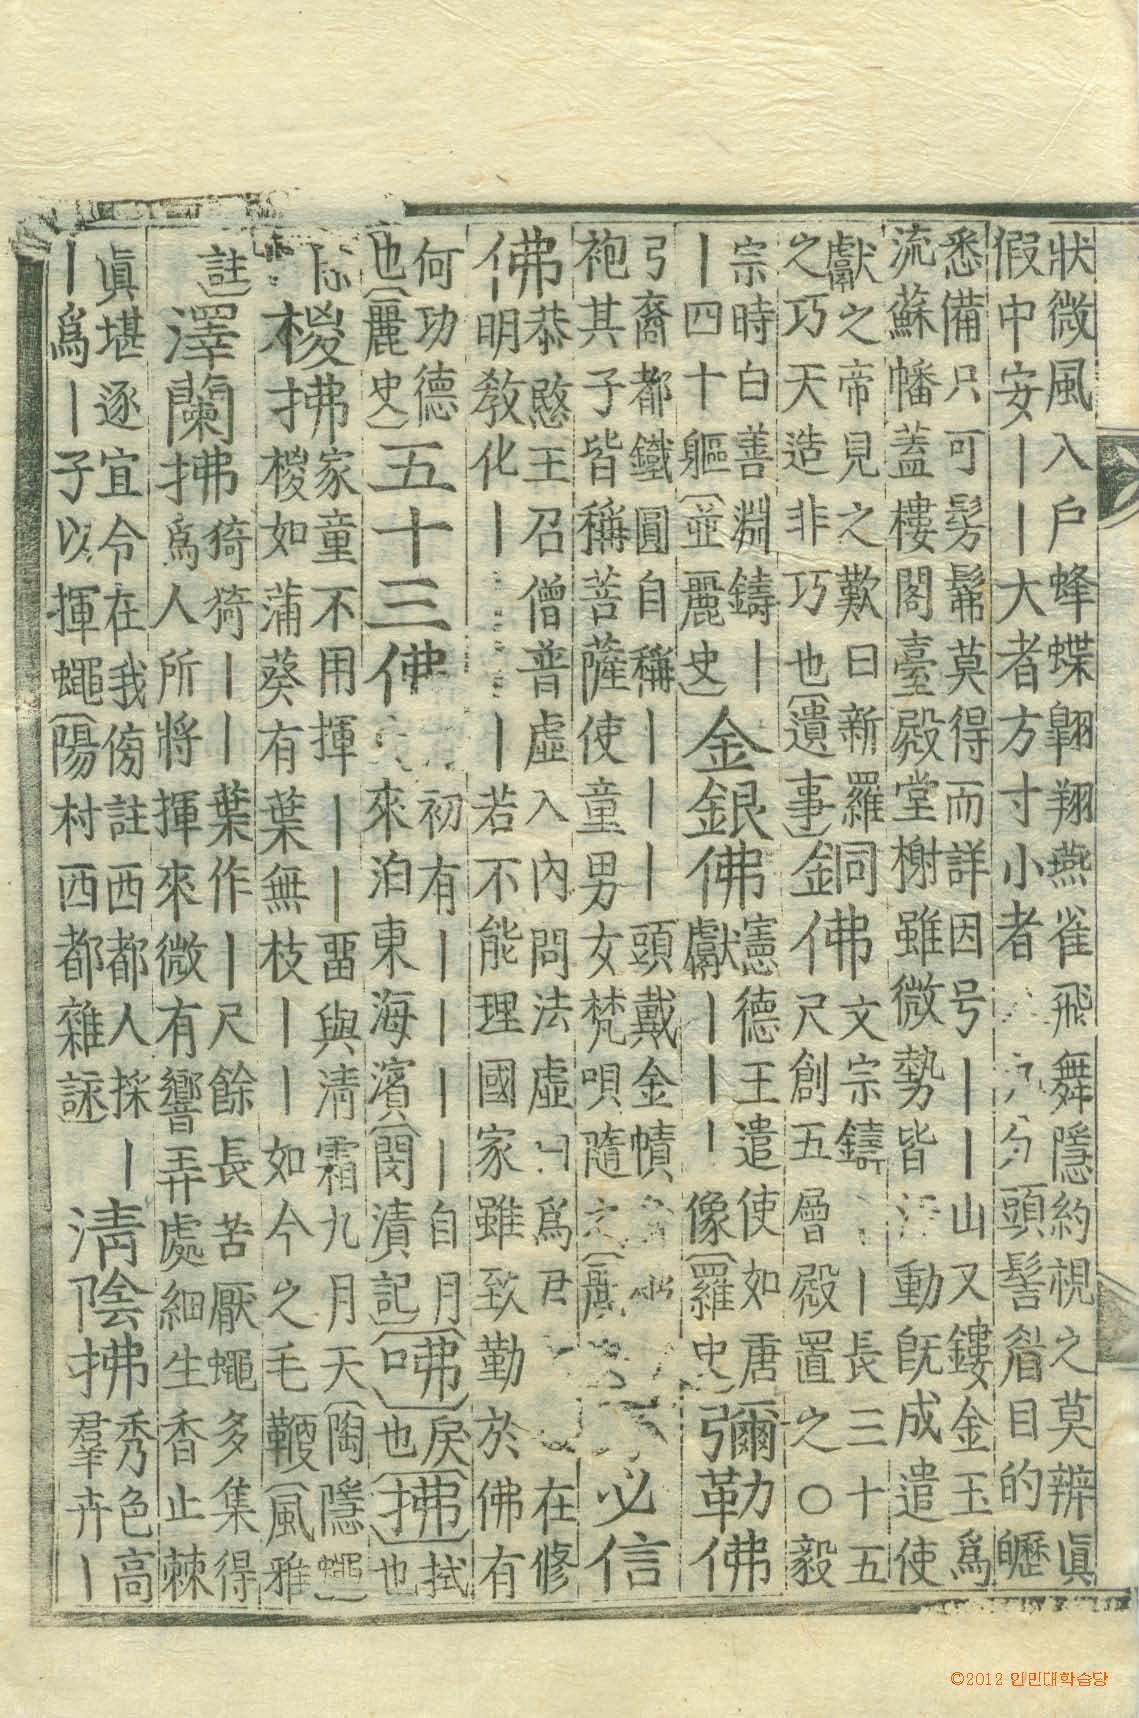 狀微風入戶蜂蝶翺翔燕雀飛舞隱約視之莫辨眞
假中安丨丨大者方寸小者頭髻眉目的皪
悉備只可髣髴莫得而詳因号丨丨山又鏤金玉爲
流蘇幡蓋樓閣臺殿堂榭雖微勢皆動旣成遣使
獻之帝見之歎曰新羅
之巧天造非巧也(遺事)
銅佛
文宗鑄丨長三十五
尺創五層殿置之○毅
宗時白善淵鑄丨
丨四十軀(並麗史)
金銀佛
憲德王遣使如唐
獻丨丨丨像(羅史)
彌勒佛
弓裔都鐵圓自稱丨丨丨頭戴金幘
袍其子皆稱菩薩使童男女梵唄隨之
必信
佛
恭愍王召僧普虛入內問法虛曰爲君在修
明敎化丨丨若不能理國家雖致勤於佛有
何功德
也(麗史)
五十三佛
初有丨丨丨丨自月
來泊東海濱(閔漬記)
(咈)
戾
也
(拂)
拭
也
椶拂
家童不用揮丨丨畱與清霜九月天(陶隱蠅)
椶如蒲葵有葉無枝丨丨如今之毛鞭(風雅
註)
澤蘭拂
猗猗丨丨葉作丨尺餘長苦厭蠅多集得
爲人所將揮來微有響弄處細生香止棘
眞堪逐宜令在我傍註西都人採丨
丨爲丨子以揮蠅(陽村西都雜詠)
淸陰拂
秀色高
羣卉丨
©2012 인민대학습당